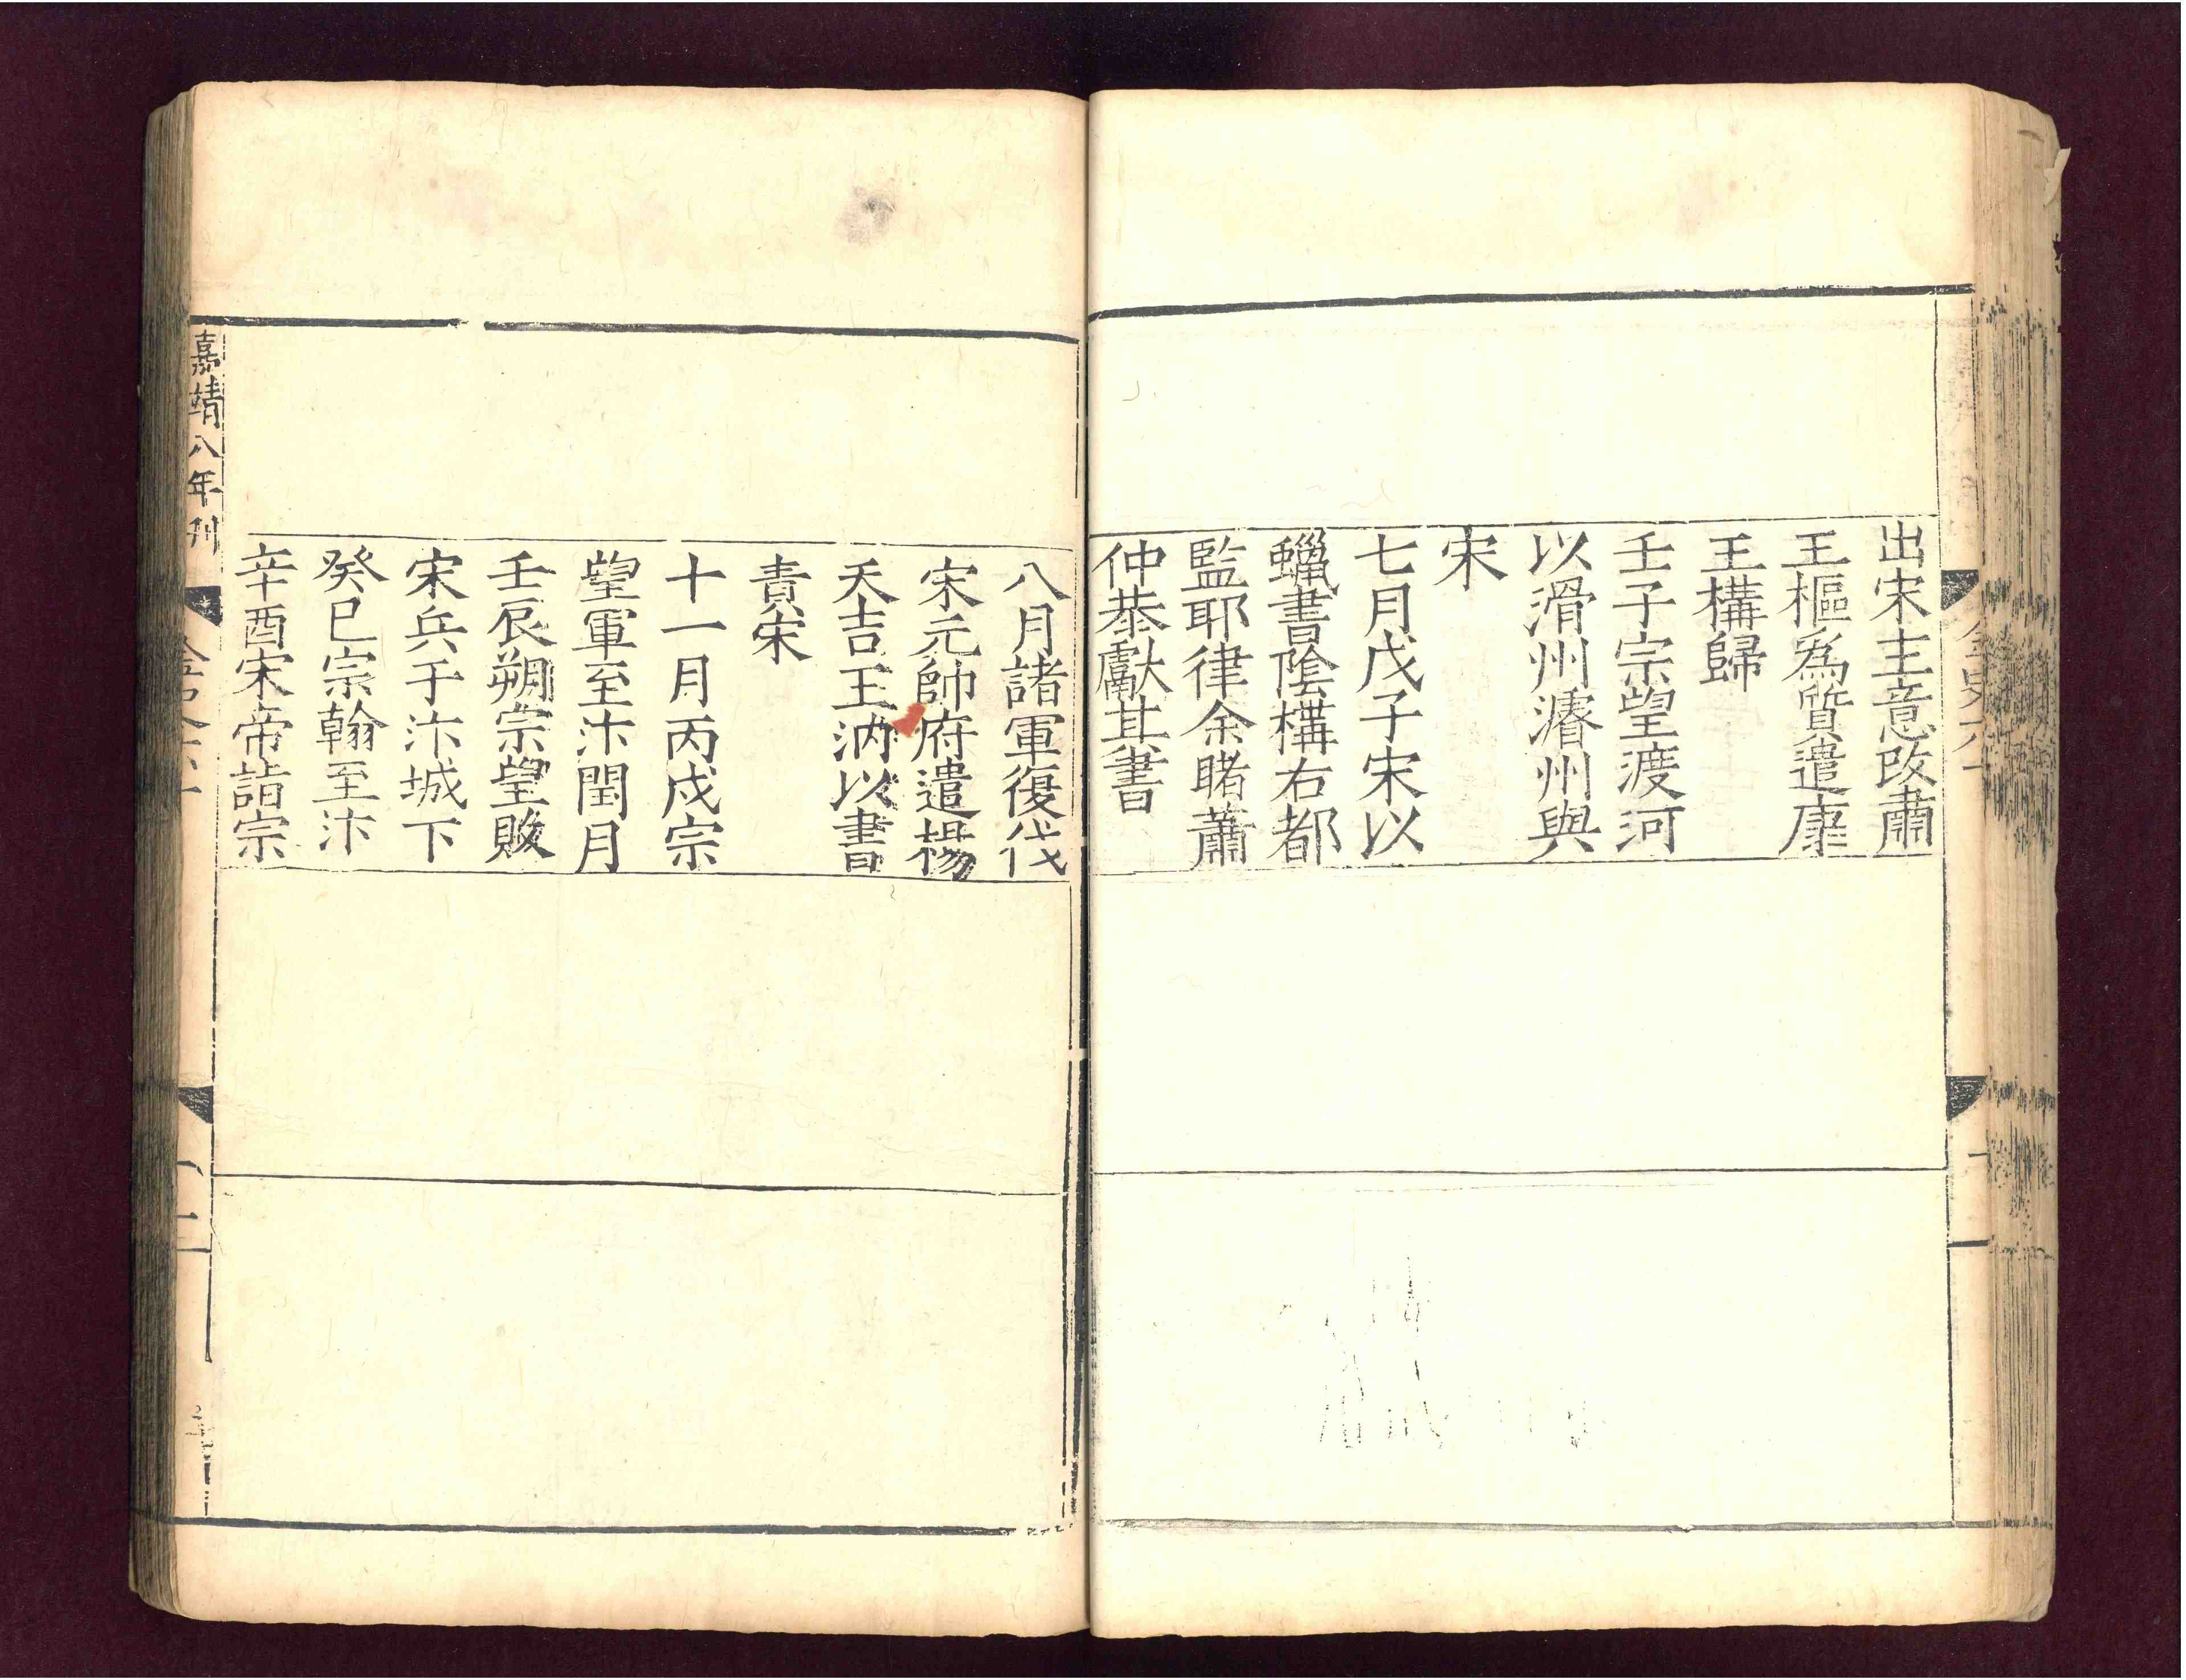 出宋主意改肅
王樞爲質遣康
王構歸
壬子宗望渡河
以滑州濬州與
宋
七月戊子宋以
蠟書陰構右都
監耶律余睹蕭
仲恭獻其書
八月諸軍復伐
宋元帥府遣楊
天吉王汭以書
責宋
十一月丙戌宗
望軍至汴閏月
壬辰朔宗望敗
宋兵于汴城下
癸巳宗翰至汴
辛酉宋帝詣宗
嘉靖八年刊